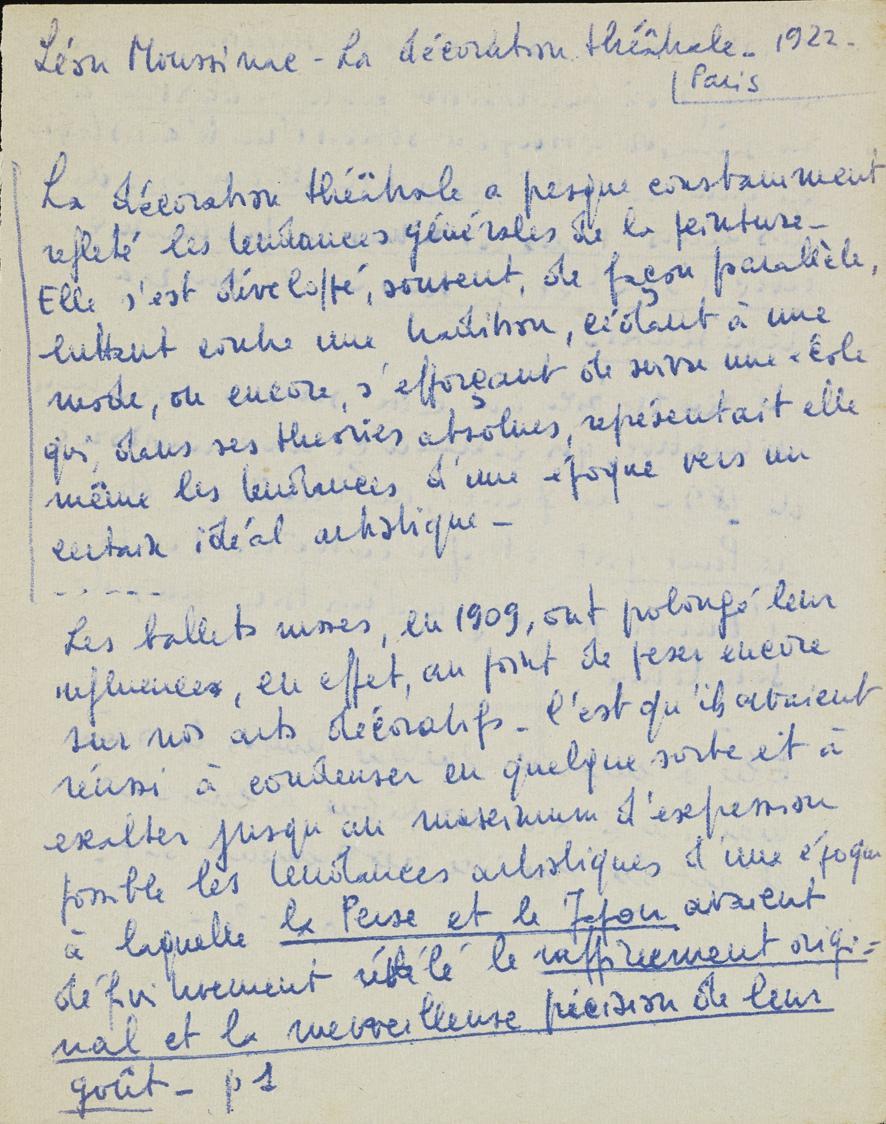 Léon Moussinac - La décoration théâtrale - 1922 -
Paris
La décoration théâtrale a presque constamment
reflété les tendances générales de la peinture -
Elle s'est développé, souvent, de façon parallèle,
luttant contre une tradition, cédant à une
mode, ou encore, s'efforçant de suivre une école
qui, dans ses théories absolues, représentait elle
même les tendances d'une époque vers un
certain idéal artistique -
- - - - -
Les ballets russes, en 1909, ont prolongé leur
influences, en effet, au point de peser encore
sur nos arts décoratifs - C'est qu'ils avaient
réussi à condenser en quelque sorte et à
exalter jusqu'au maximum d'expression
possible les tendances artistiques d'une époque
à laquelle la Perse et le Japon avaient
définitivement révélé le raffinement origi=
nal et la merveilleuse précision de leur
goût - p 1